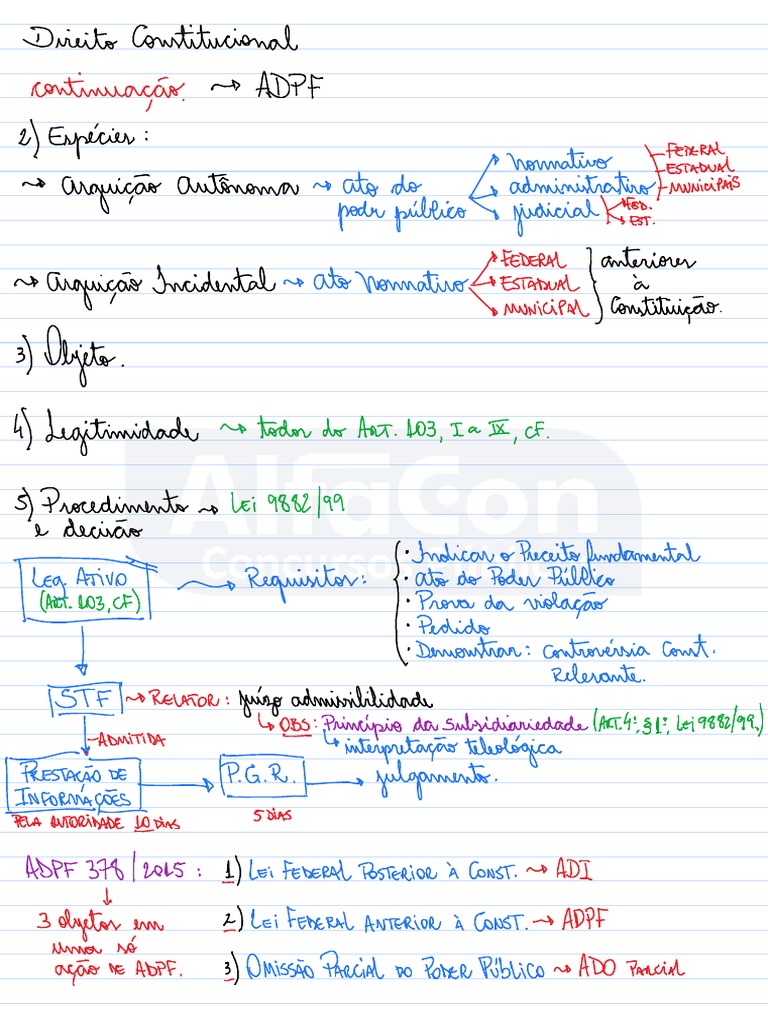 Direito Constitucional
continuação. → ADPF
2) Espécies:
→ Arguição Autônoma → ato do poder público
normativo
administrativo
judicial
FEDERAL
ESTADUAL
MUNICIPAIS
FED.
EST.
→ Arguição Incidental → ato Normativo
FEDERAL
ESTADUAL
MUNICIPAL
anteriores
à
Constituição.
3) Objeto.
4) Legitimidade → todos do ART. 103, I a IX, CF.
5) Procedimento → LEI 9882/99
e decisão
AlfaCon
Leg. ATIVO
(ART. 103, CF)
→ Requisitos:
• Indicar o Preceito fundamental
• ato do Poder Público
• Prova da violação
• Pedido
• Demonstrar: controvérsia Const.
Relevante.
STF → RELATOR: juízo admissibilidade
↳ OBS: Princípio da subsidiariedade (ART. 4º, §1º, Lei 9882/99.)
↳ interpretação teleológica
ADMITIDA
PRESTAÇÃO DE
INFORMAÇÕES
→ P.G.R. → julgamento.
PELA AUTORIDADE 10 DIAS
5 DIAS
ADPF 378/2015:
3 objetos em
uma só
ação DE ADPF.
1) LEI FEDERAL POSTERIOR À CONST. → ADI
2) LEI FEDERAL ANTERIOR À CONST. → ADPF
3) OMISSÃO PARCIAL DO PODER PÚBLICO → ADO PARCIAL